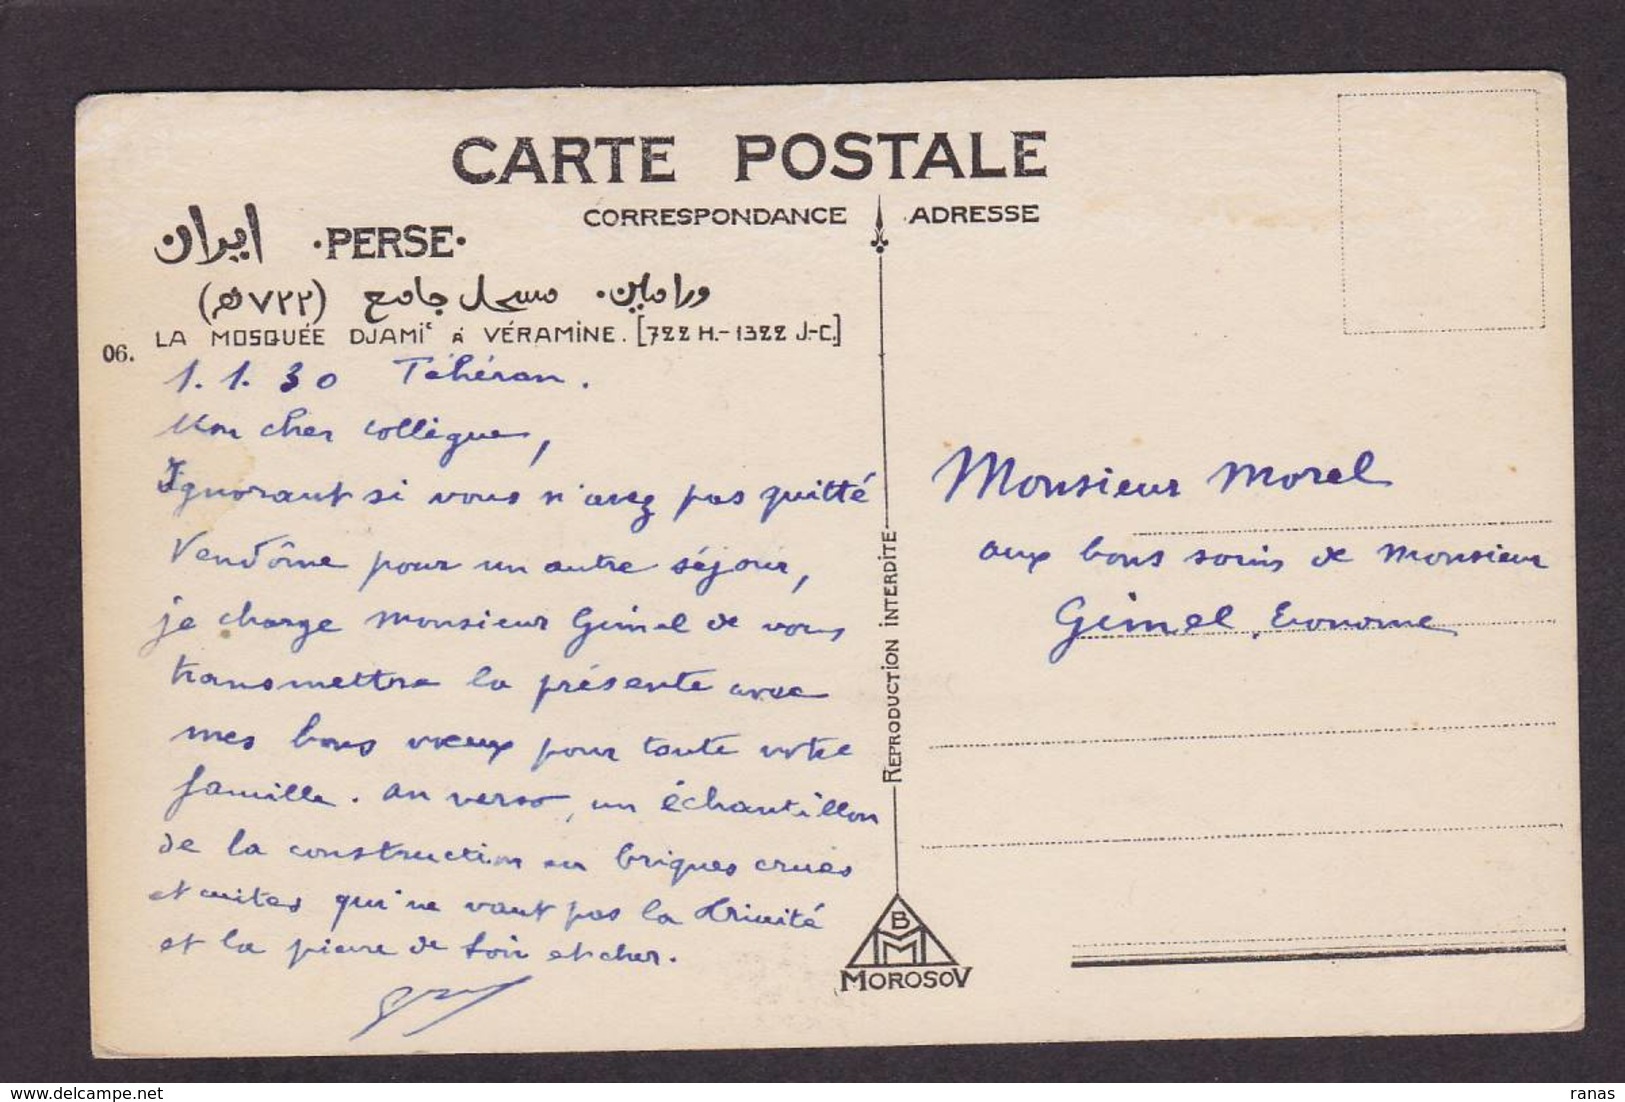 CARTE POSTALE
CORRESPONDANCE ADRESSE
ایران ·PERSE·
ورامین. مسجد جامع (۷۲۲ هـ)
06. LA MOSQUÉE DJAMIᶜ à VÉRAMINE. [722 H.-1322 J.-C.]
1.1.30 Téhéran.
Mon cher collègue,
Ignorant si vous n'avez pas quitté
Vendôme pour un autre séjour,
je charge Monsieur Gimel de vous
transmettre la présente avec
mes bons vœux pour toute votre
famille. au verso, un échantillon
de la construction en briques crues
et cuites qui ne vaut pas la Trinité
et la pierre de Loir et cher.
Monsieur Morel
aux bons soins de Monsieur
Gimel, Econome
REPRODUCTION INTERDITE
B
M
MOROSOV
delcampe.net
ranas